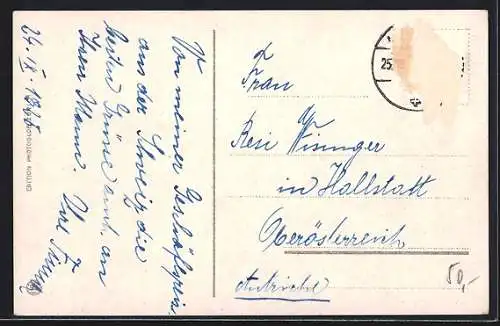 24. IX. 1935
Von meiner Geschäftsreise
aus der Schweiz die
besten Grüsse auch an
Ihren Mann.
Ihre
Frau
Resi Wisinger
in Hallstatt
Oberösterreich
Autriche
25.
50,-